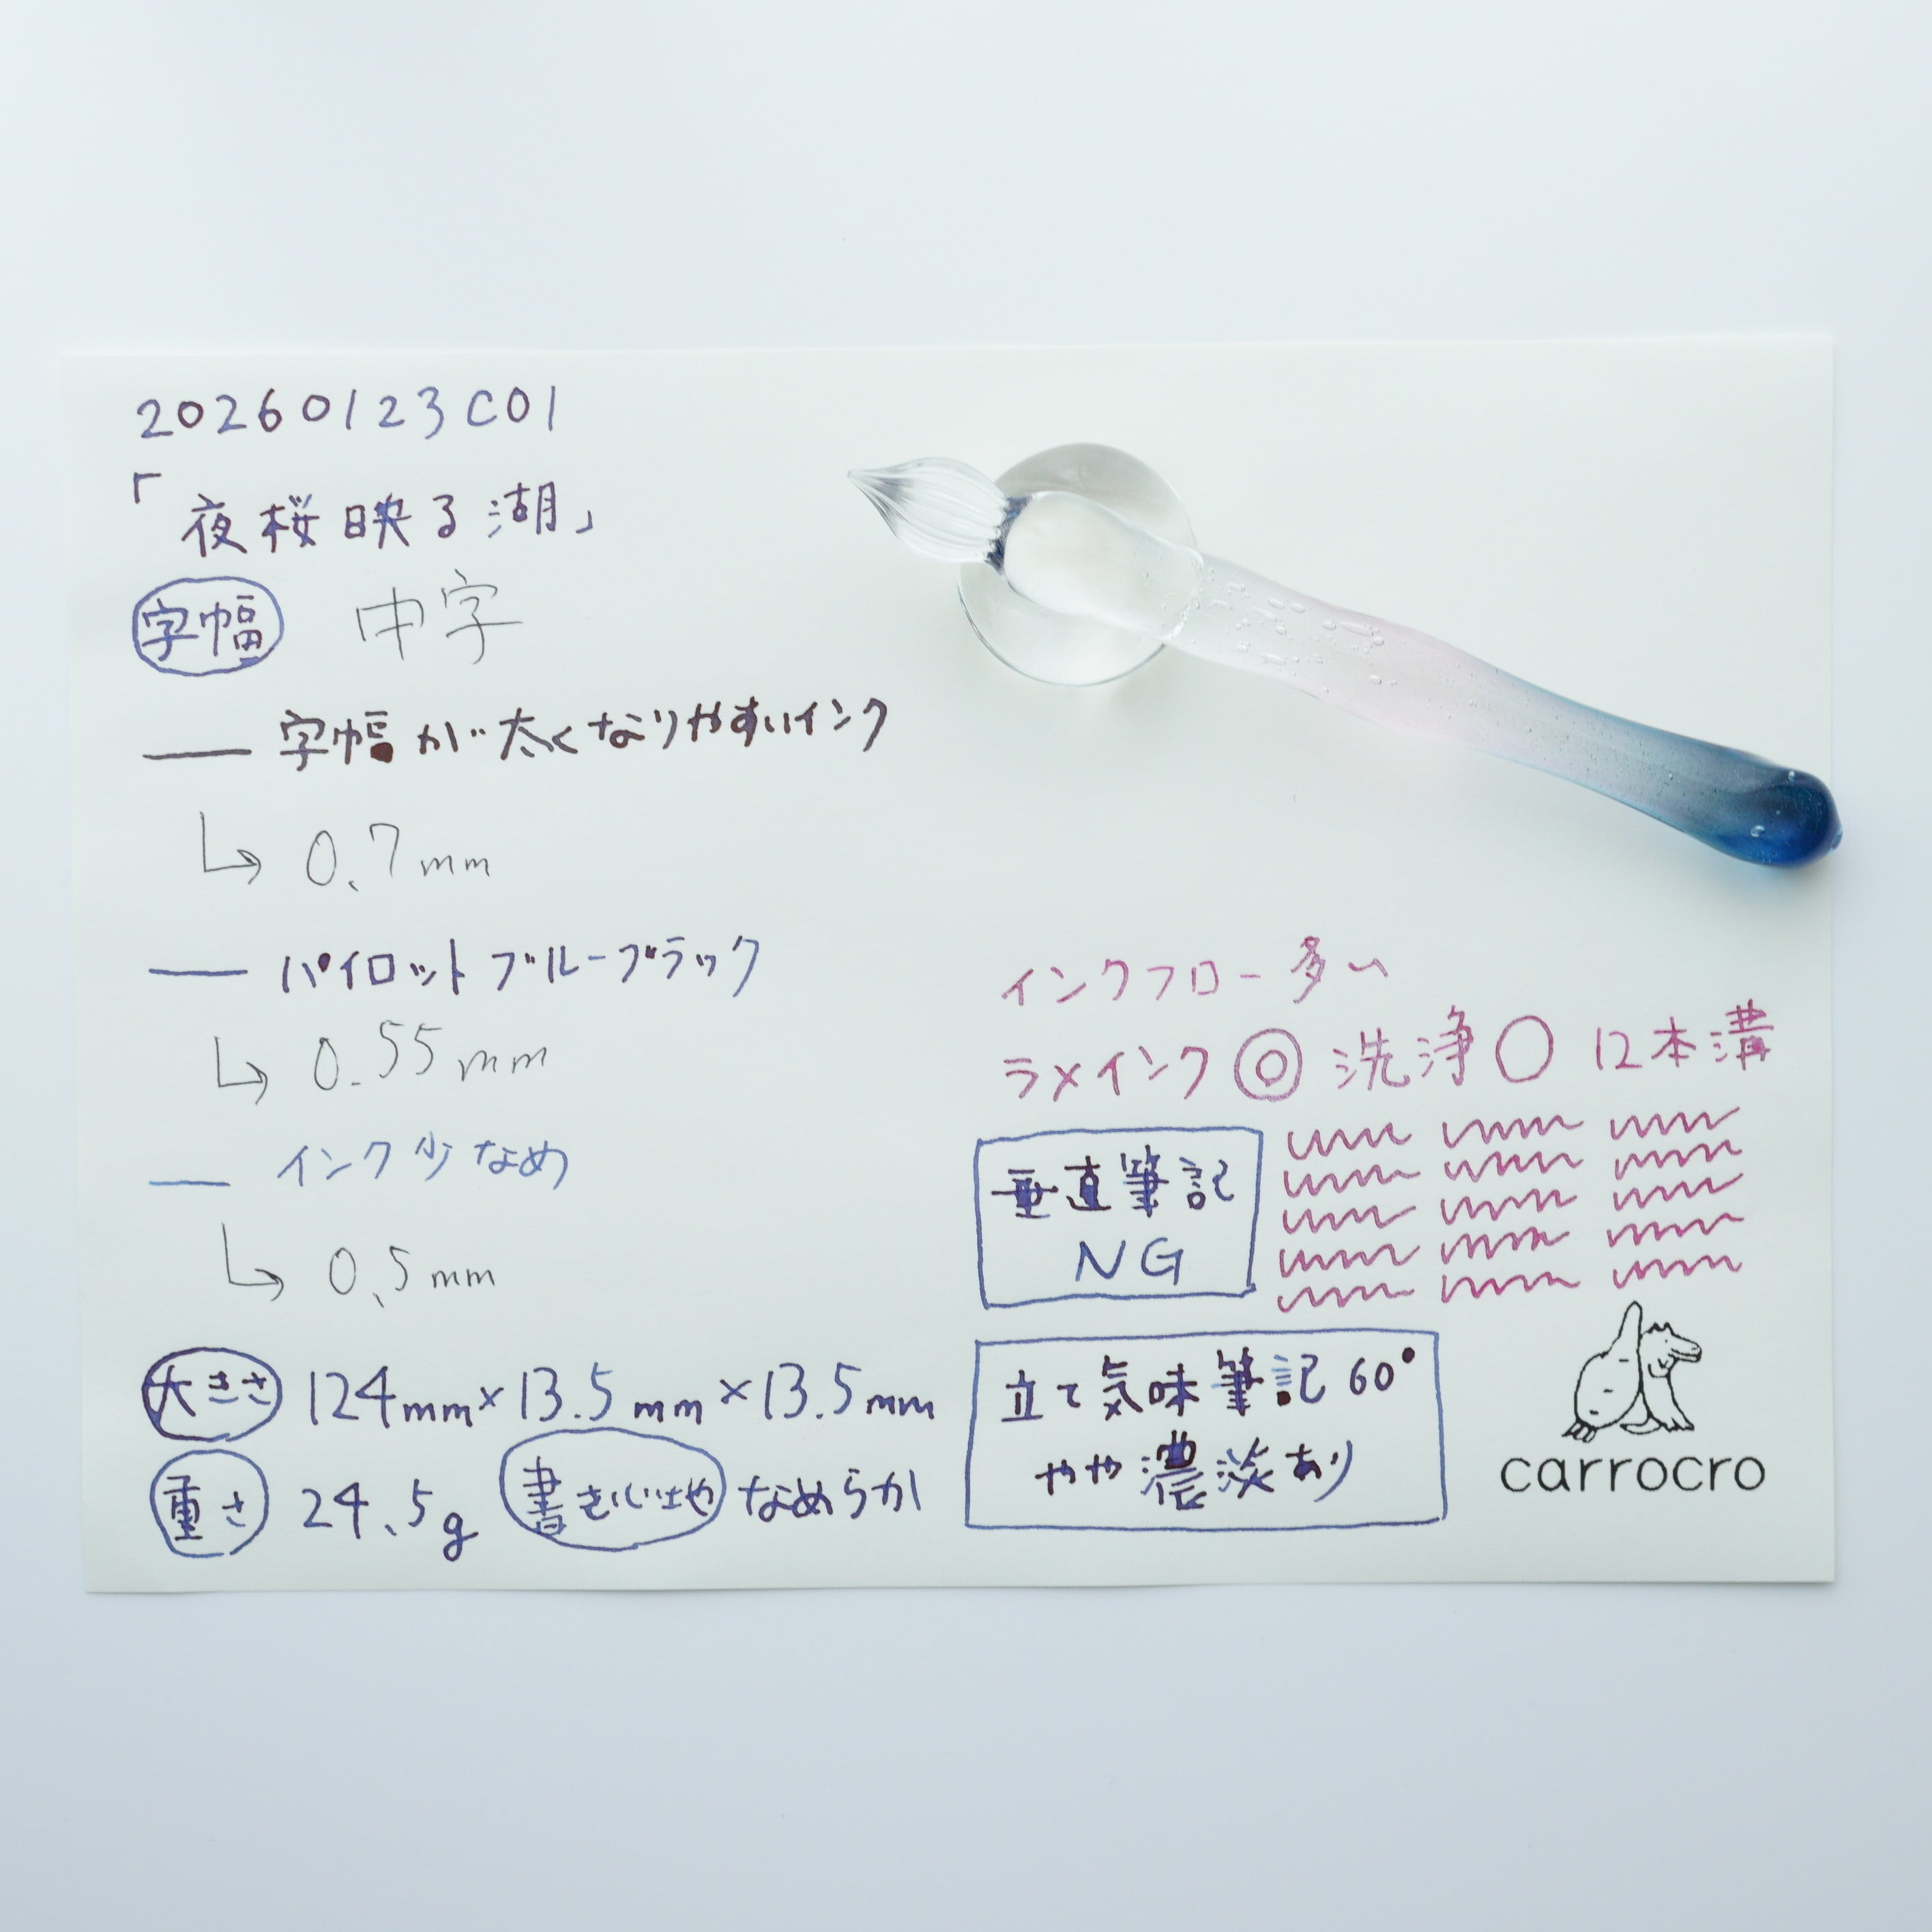 20260123C01
「夜桜映る湖」
字幅 中字
字幅が太くなりやすいインク
0.7mm
パイロットブルーブラック
0.55mm
インク少なめ
0.5mm
大きさ 124mm×13.5mm×13.5mm
重さ 24.5g 書き心地 なめらか
インクフロー多い
ラメインク◎ 洗浄○ 12本溝
垂直筆記
NG
立て気味筆記60°
やや濃淡あり
carrocro